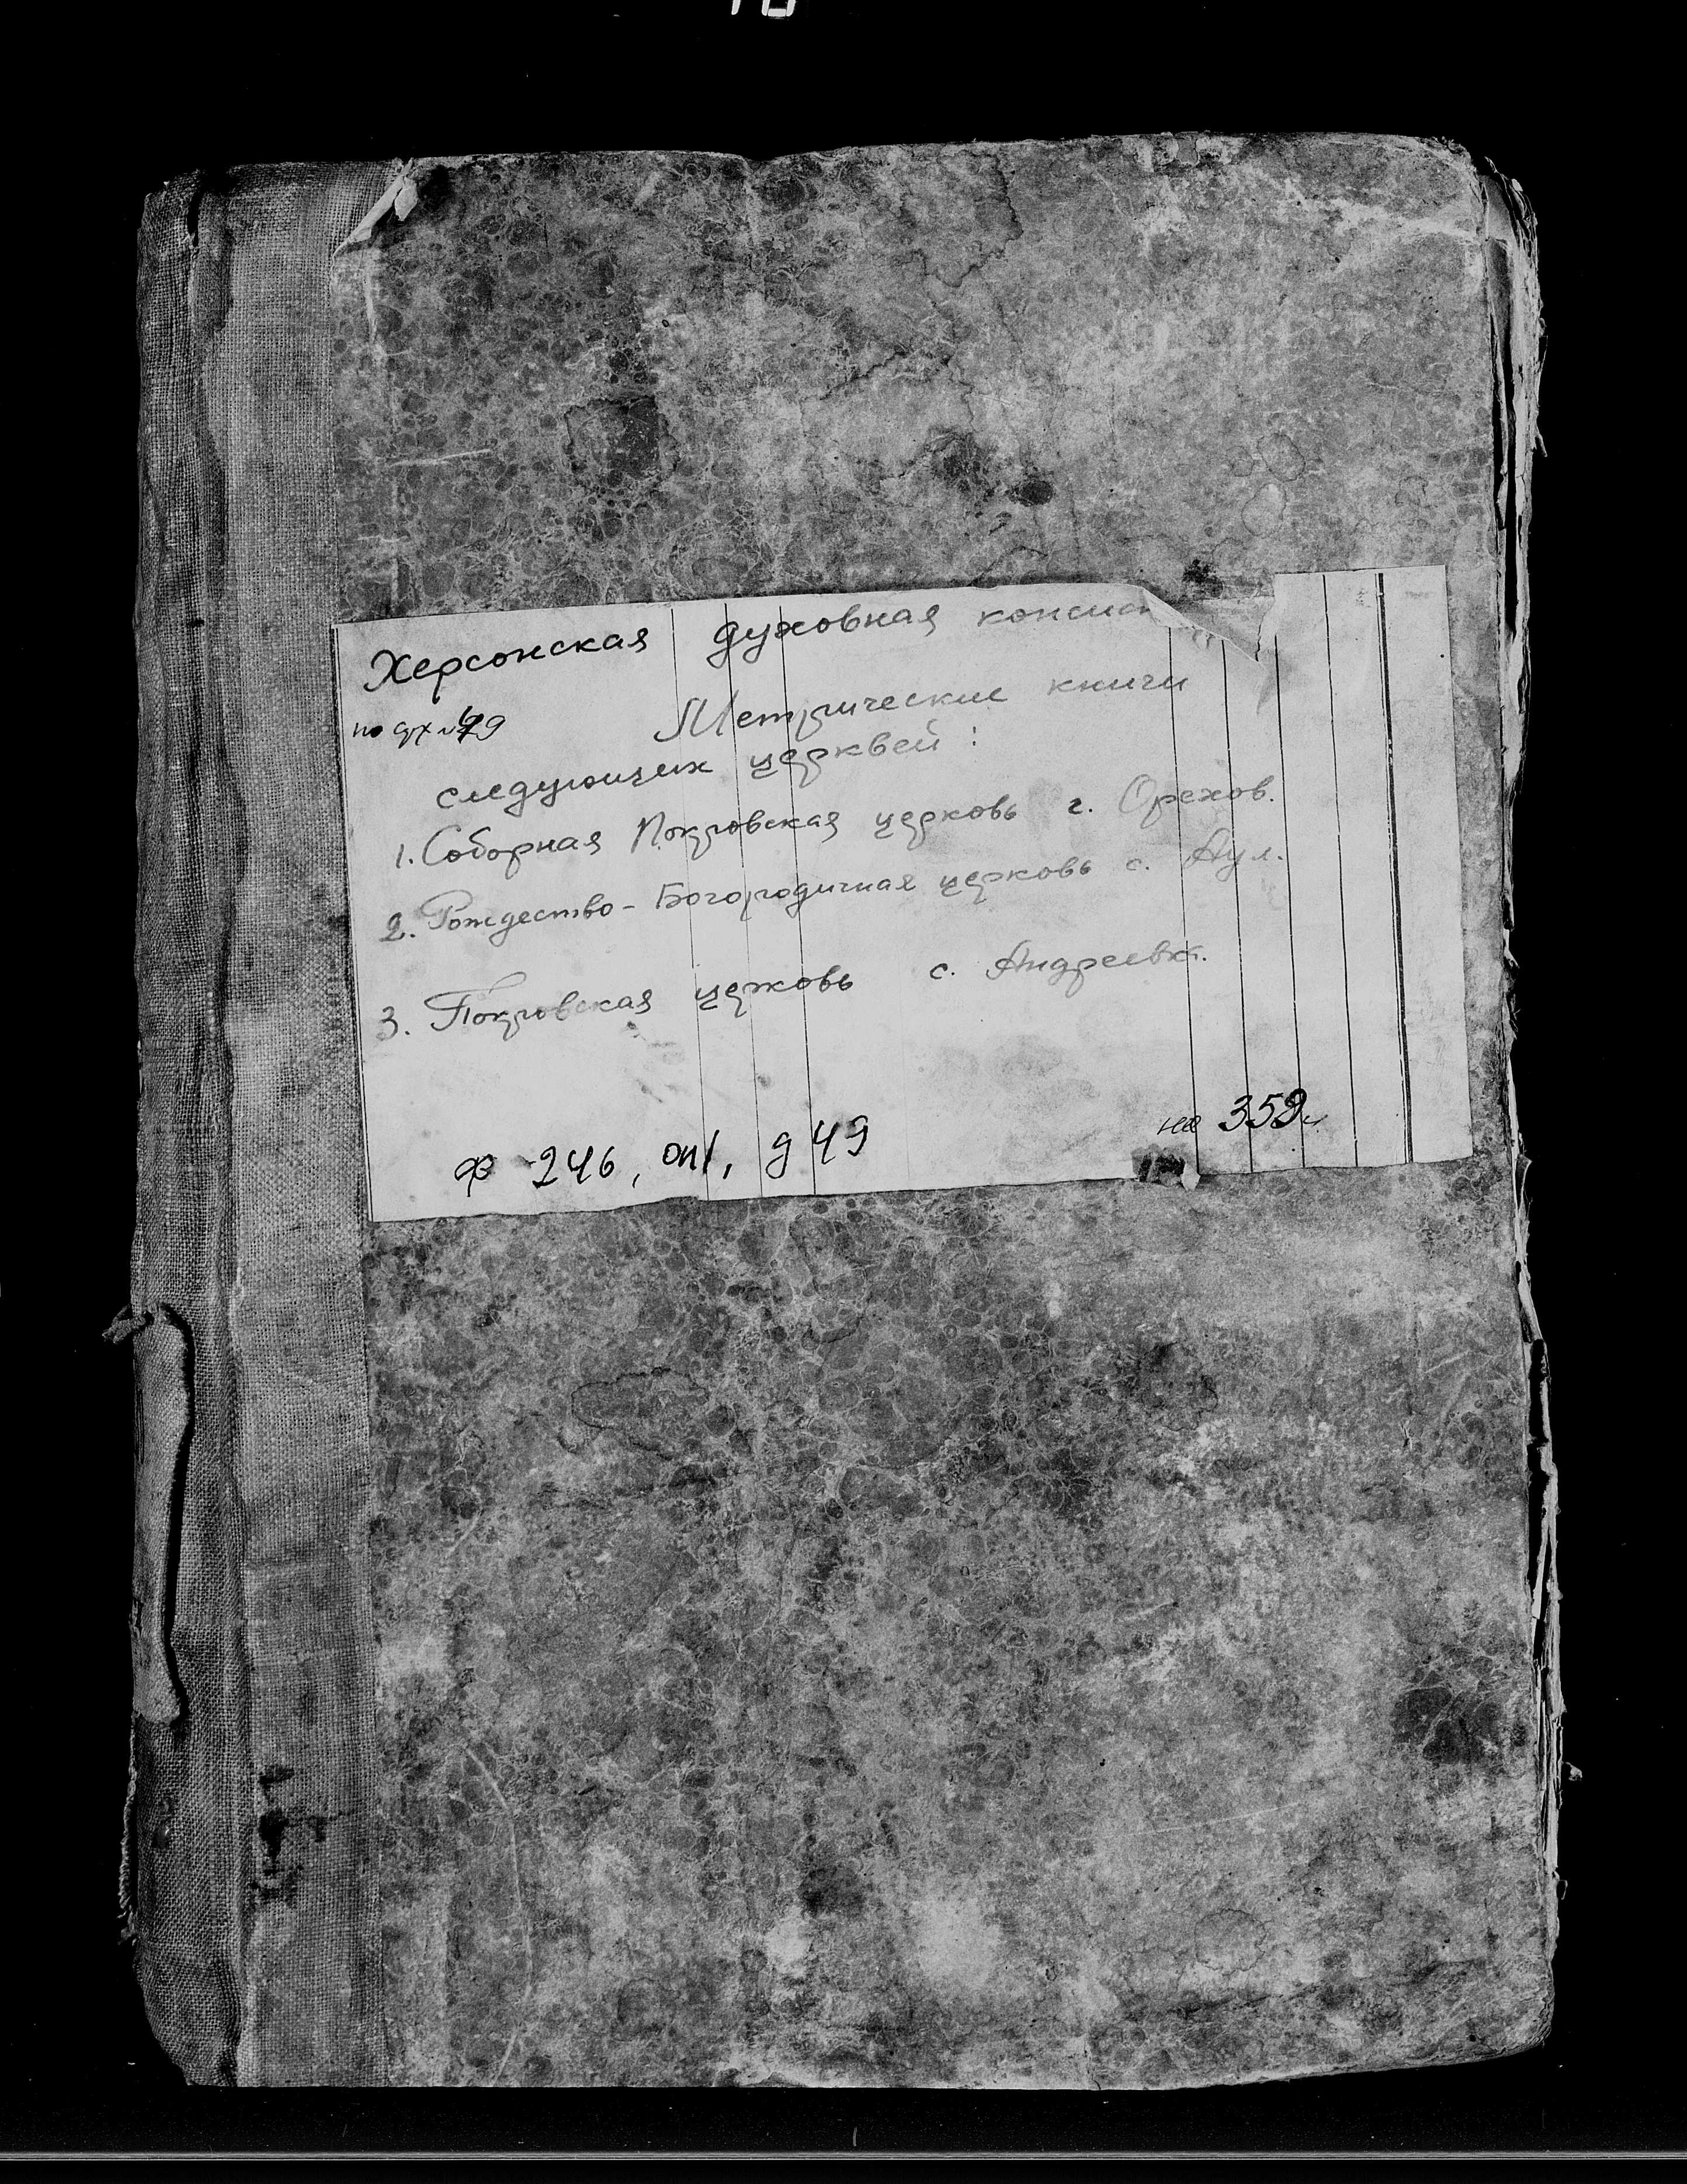 Херсонская духовная консист
Метрические книги
следующих церквей:
1. Соборная Покровская церковь г. Орехов.
2. Рождество-Богородичная церковь с. Аул.
3. Покровская церковь с. Андреевка.
ф 246, оп1, д 49
на 359 л